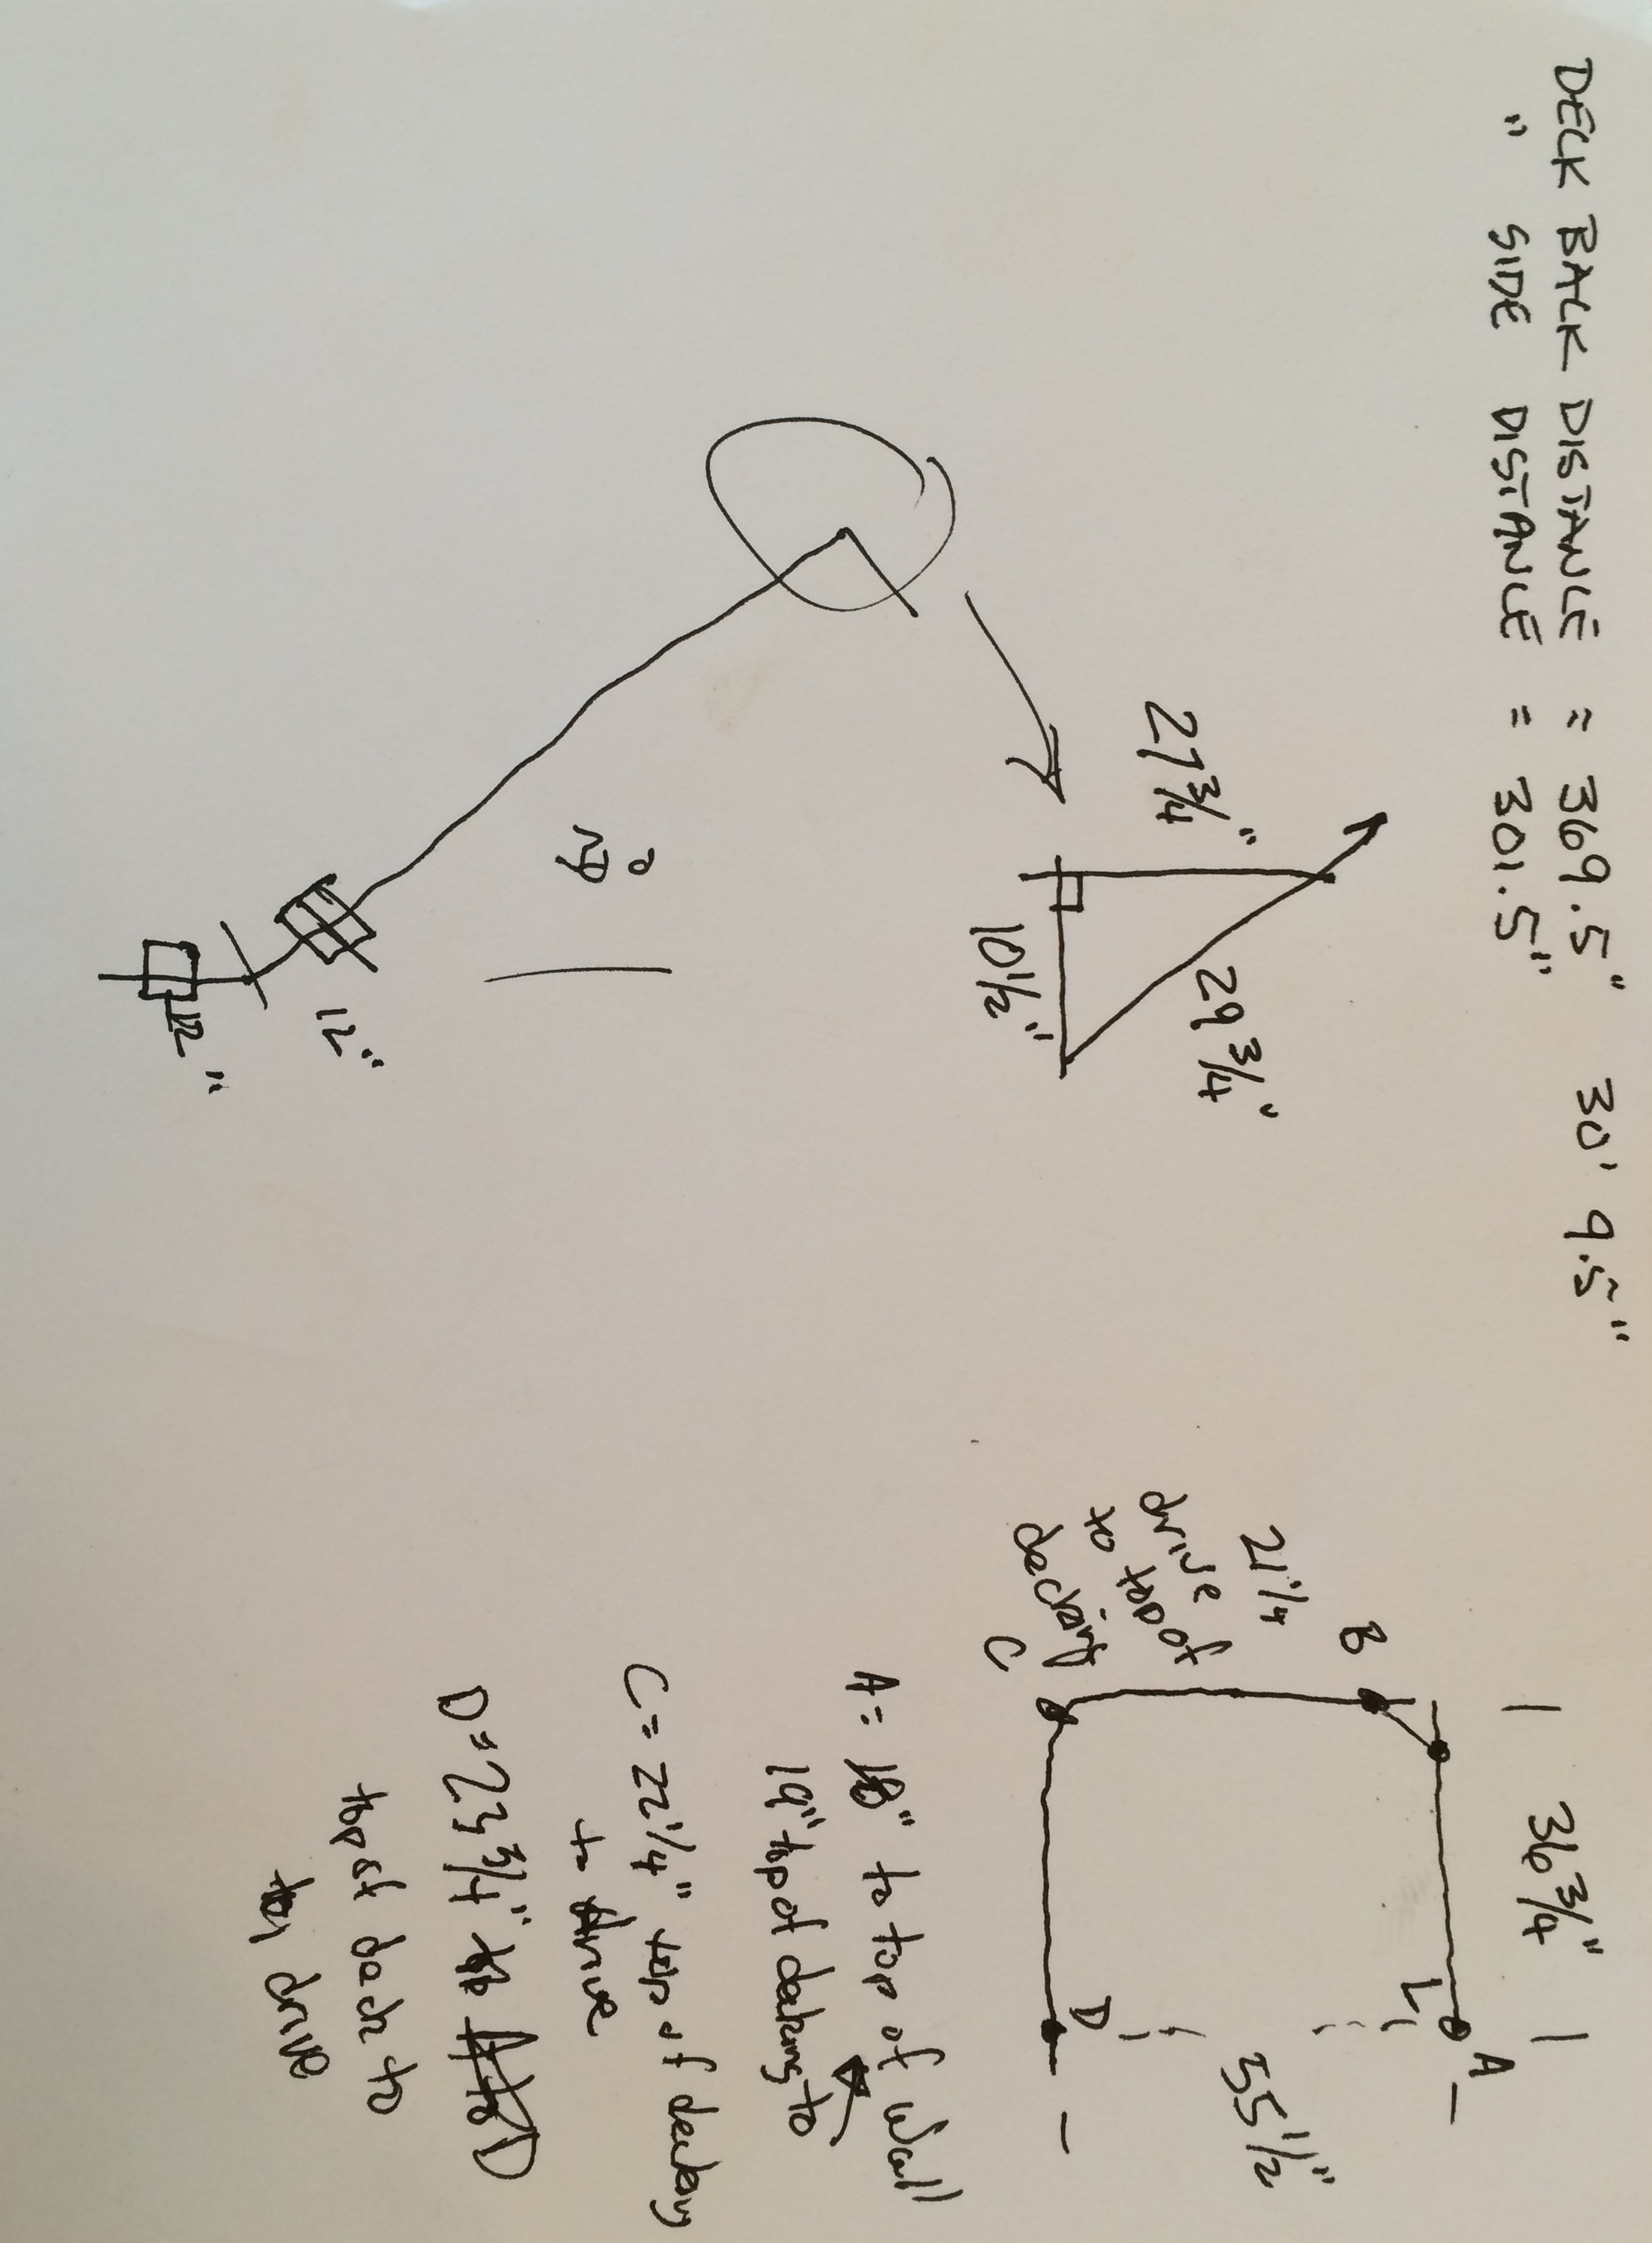 DECK BACK DISTANCE = 369.5" 30' 9.5"
" SIDE DISTANCE = 301.5"
27 3/4"
29 3/4"
10 1/2"
12"
12"
36 3/4"
A
B
L
21 1/4
drive
to top of
decking
55 1/2"
C
D
A = 18" to top of wall
19" top of decking to
C = 22 1/4" top of decking
to drive
D = 23 3/4"
top of deck to
drive